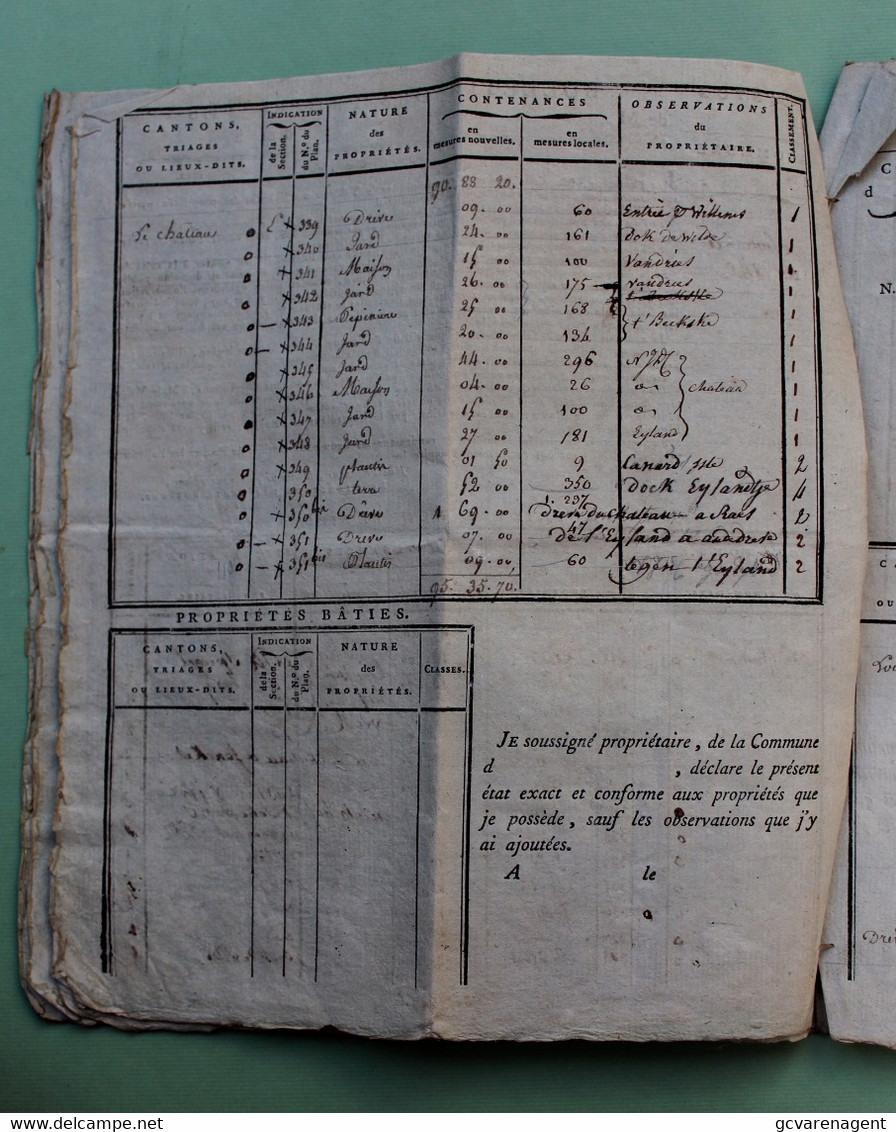 CANTONS, TRIAGES OU LIEUX-DITS. INDICATION de la Section. du N.º du Plan. NATURE des PROPRIÉTÉS. CONTENANCES en mesures nouvelles. en mesures locales. OBSERVATIONS du PROPRIÉTAIRE. CLASSEMENT.
90. 88 20.
Le chateau 339 Drève 09. 00 60 1
340 Jard 24. 00 161 Dok de Welde 1
341 Maison 15 00 100 Vandries 1
342 Jard 26. 00 175 Vandries 1
343 Pepinière 25 00 168 t'Beekske 1
344 Jard 20. 00 134 1
345 Jard 44. 00 296 1
346 Maison 04. 00 26 chateau 1
347 Jard 15 00 100 1
348 Jard 27 00 181 Eyland 1
349 plantis 01 50 9 2
350 terre 52 00 350 dock Eylandtje 4
350 bis Drève 1 69. 00 237 drève du chateau a Raes 2
351 Dreve 07. 00 47 de l'Eyland a 2
351 bis Plantis 09. 00 60 tegen t'Eyland 2
95. 35. 70.
PROPRIÉTÉS BÂTIES.
CANTONS, TRIAGES OU LIEUX-DITS. INDICATION de la Section. du N.º du Plan. NATURE des PROPRIÉTÉS. CLASSES.
JE soussigné propriétaire, de la Commune
d , déclare le présent
état exact et conforme aux propriétés que
je possède, sauf les observations que j'y
ai ajoutées.
A le
C
d
N.
C
gcvarenagent